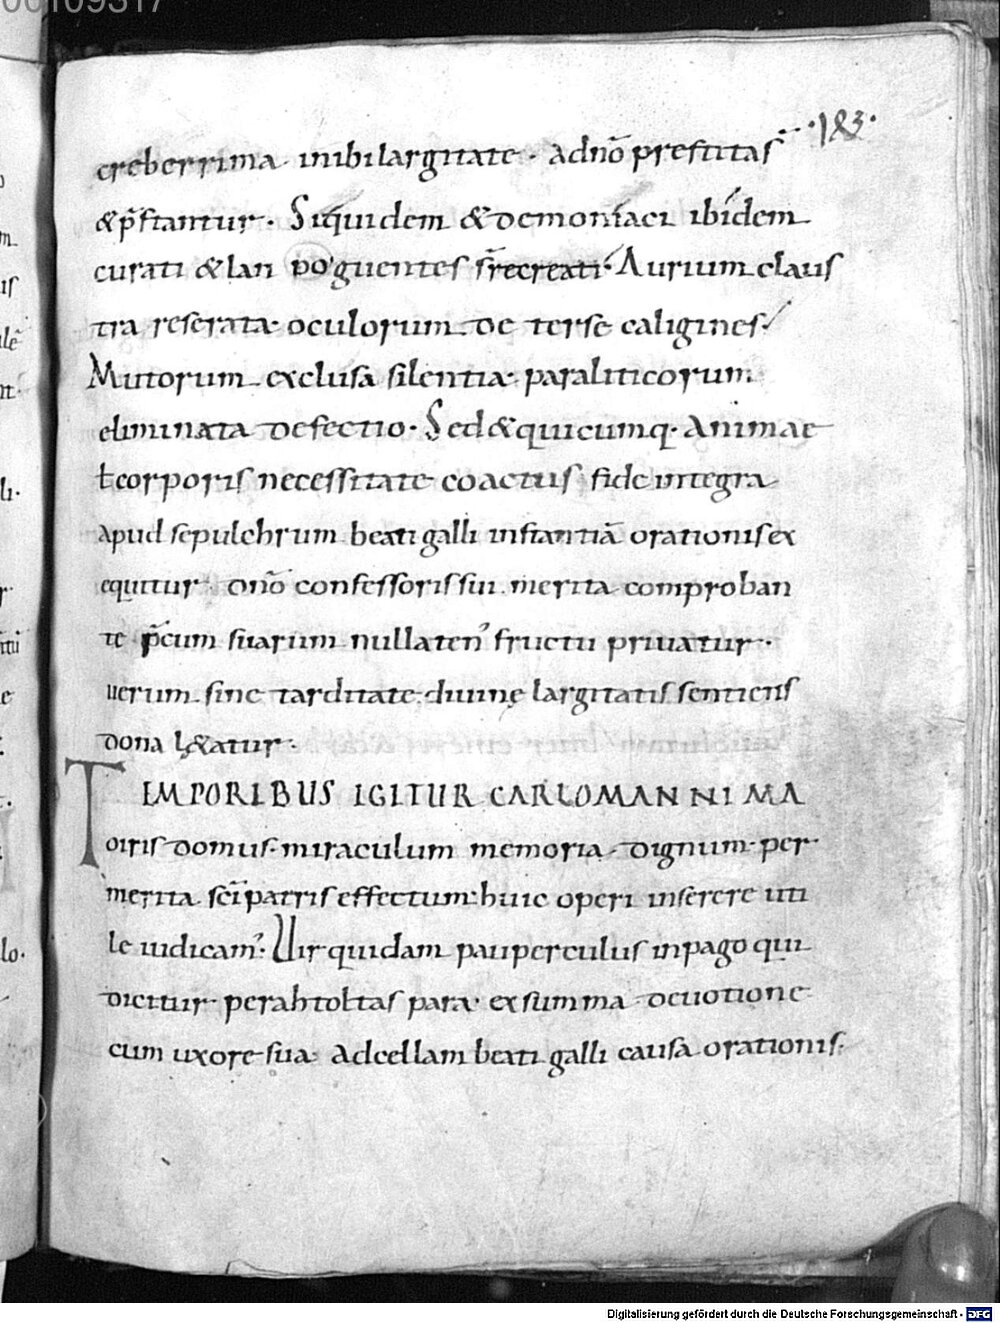 00109317
·183·
creberrima inibi largitate · adnõ prestitas
& p̃stantur · Siquidem & demoniaci ibidem
curati & lan do guentes s̃ recreati · Aurium claus
tra reserata · oculorum de terse caligines
Mutorum exclusa silentia · paraliticorum
eliminata defectio · Sed & quicumq· animae
ł corporis necessitate coactus fide integra
apud sepulchrum beati galli instantiã orationis ex
equitur · dnõ confessoris sui merita comproban
te p̃cum suarum nullaten᾿ fructu priuatur ·
uerum sine tarditate diuinę largitatis sentiens
dona l&atur ·
TIMPORIBUS IGITUR CARLOMANNI MA
oiris domus · miraculum memoria dignum · per
merita sc̃i patris effectum · huic operi inserere uti
le iudicam᾿ · Uir quidam pauperculus in pago qui
dicitur perahtoltas para · ex summa deuotione
cum uxore sua · ad cellam beati galli causa orationis ·
Digitalisierung gefördert durch die Deutsche Forschungsgemeinschaft - DFG